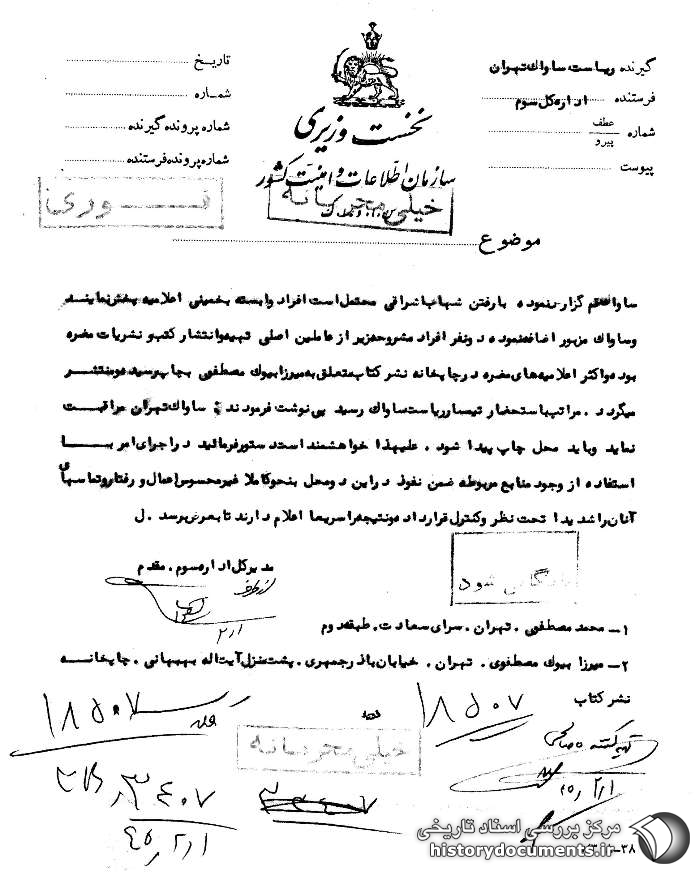 گیرنده ریاست ساواک تهران
فرستنده اداره کل سوم
شماره عطف پیرو
پیوست
نخست وزیری
سازمان اطلاعات و امنیت کشور
تاریخ
شماره
شماره پرونده گیرنده
شماره پرونده فرستنده
خیلی محرمانه
فوری
موضوع
ساواک قم گزارش نموده با رفتن شهاب اشراقی محتمل است افراد وابسته به خمینی اعلامیه پخش نمایند
و ساواک مزبور اضافه نموده دو نفر افراد مشروحه زیر از عاملین اصلی تهیه و انتشار کتب و نشریات مضره
بوده و اکثر اعلامیه‌های مضره در چاپخانه نشر کتاب متعلق به میرزا بیوک مصطفوی بچاپ رسیده و منتشر
میگردد . مراتب باستحضار تیمسار ریاست ساواک رسید پی نوشت فرمودند : ساواک تهران مراقبت
نماید و باید محل چاپ پیدا شود . علیهذا خواهشمند است دستور فرمائید در اجرای امر با
استفاده از وجود منابع مربوطه ضمن نفوذ در این دو محل بنحو کاملا غیر محسوس اعمال و رفتار و تماسهای
آنان را شدیدا تحت نظر و کنترل قرار داده و نتیجه را سریعا اعلام دارند تا بعرض برسد . ل
مدیر کل اداره سوم . مقدم
از طرف
۲ر۱
بایگانی شود
۱- محمد مصطفوی . تهران . سرای سعادت . طبقه دوم
۲- میرزا بیوک مصطفوی . تهران . خیابان باذرجمهری . پشت منزل آیت اله بهبهانی . چاپخانه
نشر کتاب
۱۸۵۰۷
۱۸۵۰۷
خیلی محرمانه
تهیه کننده صالحی
۴۵ر۲ر۱
مرکز بررسی اسناد تاریخی
historydocuments.ir